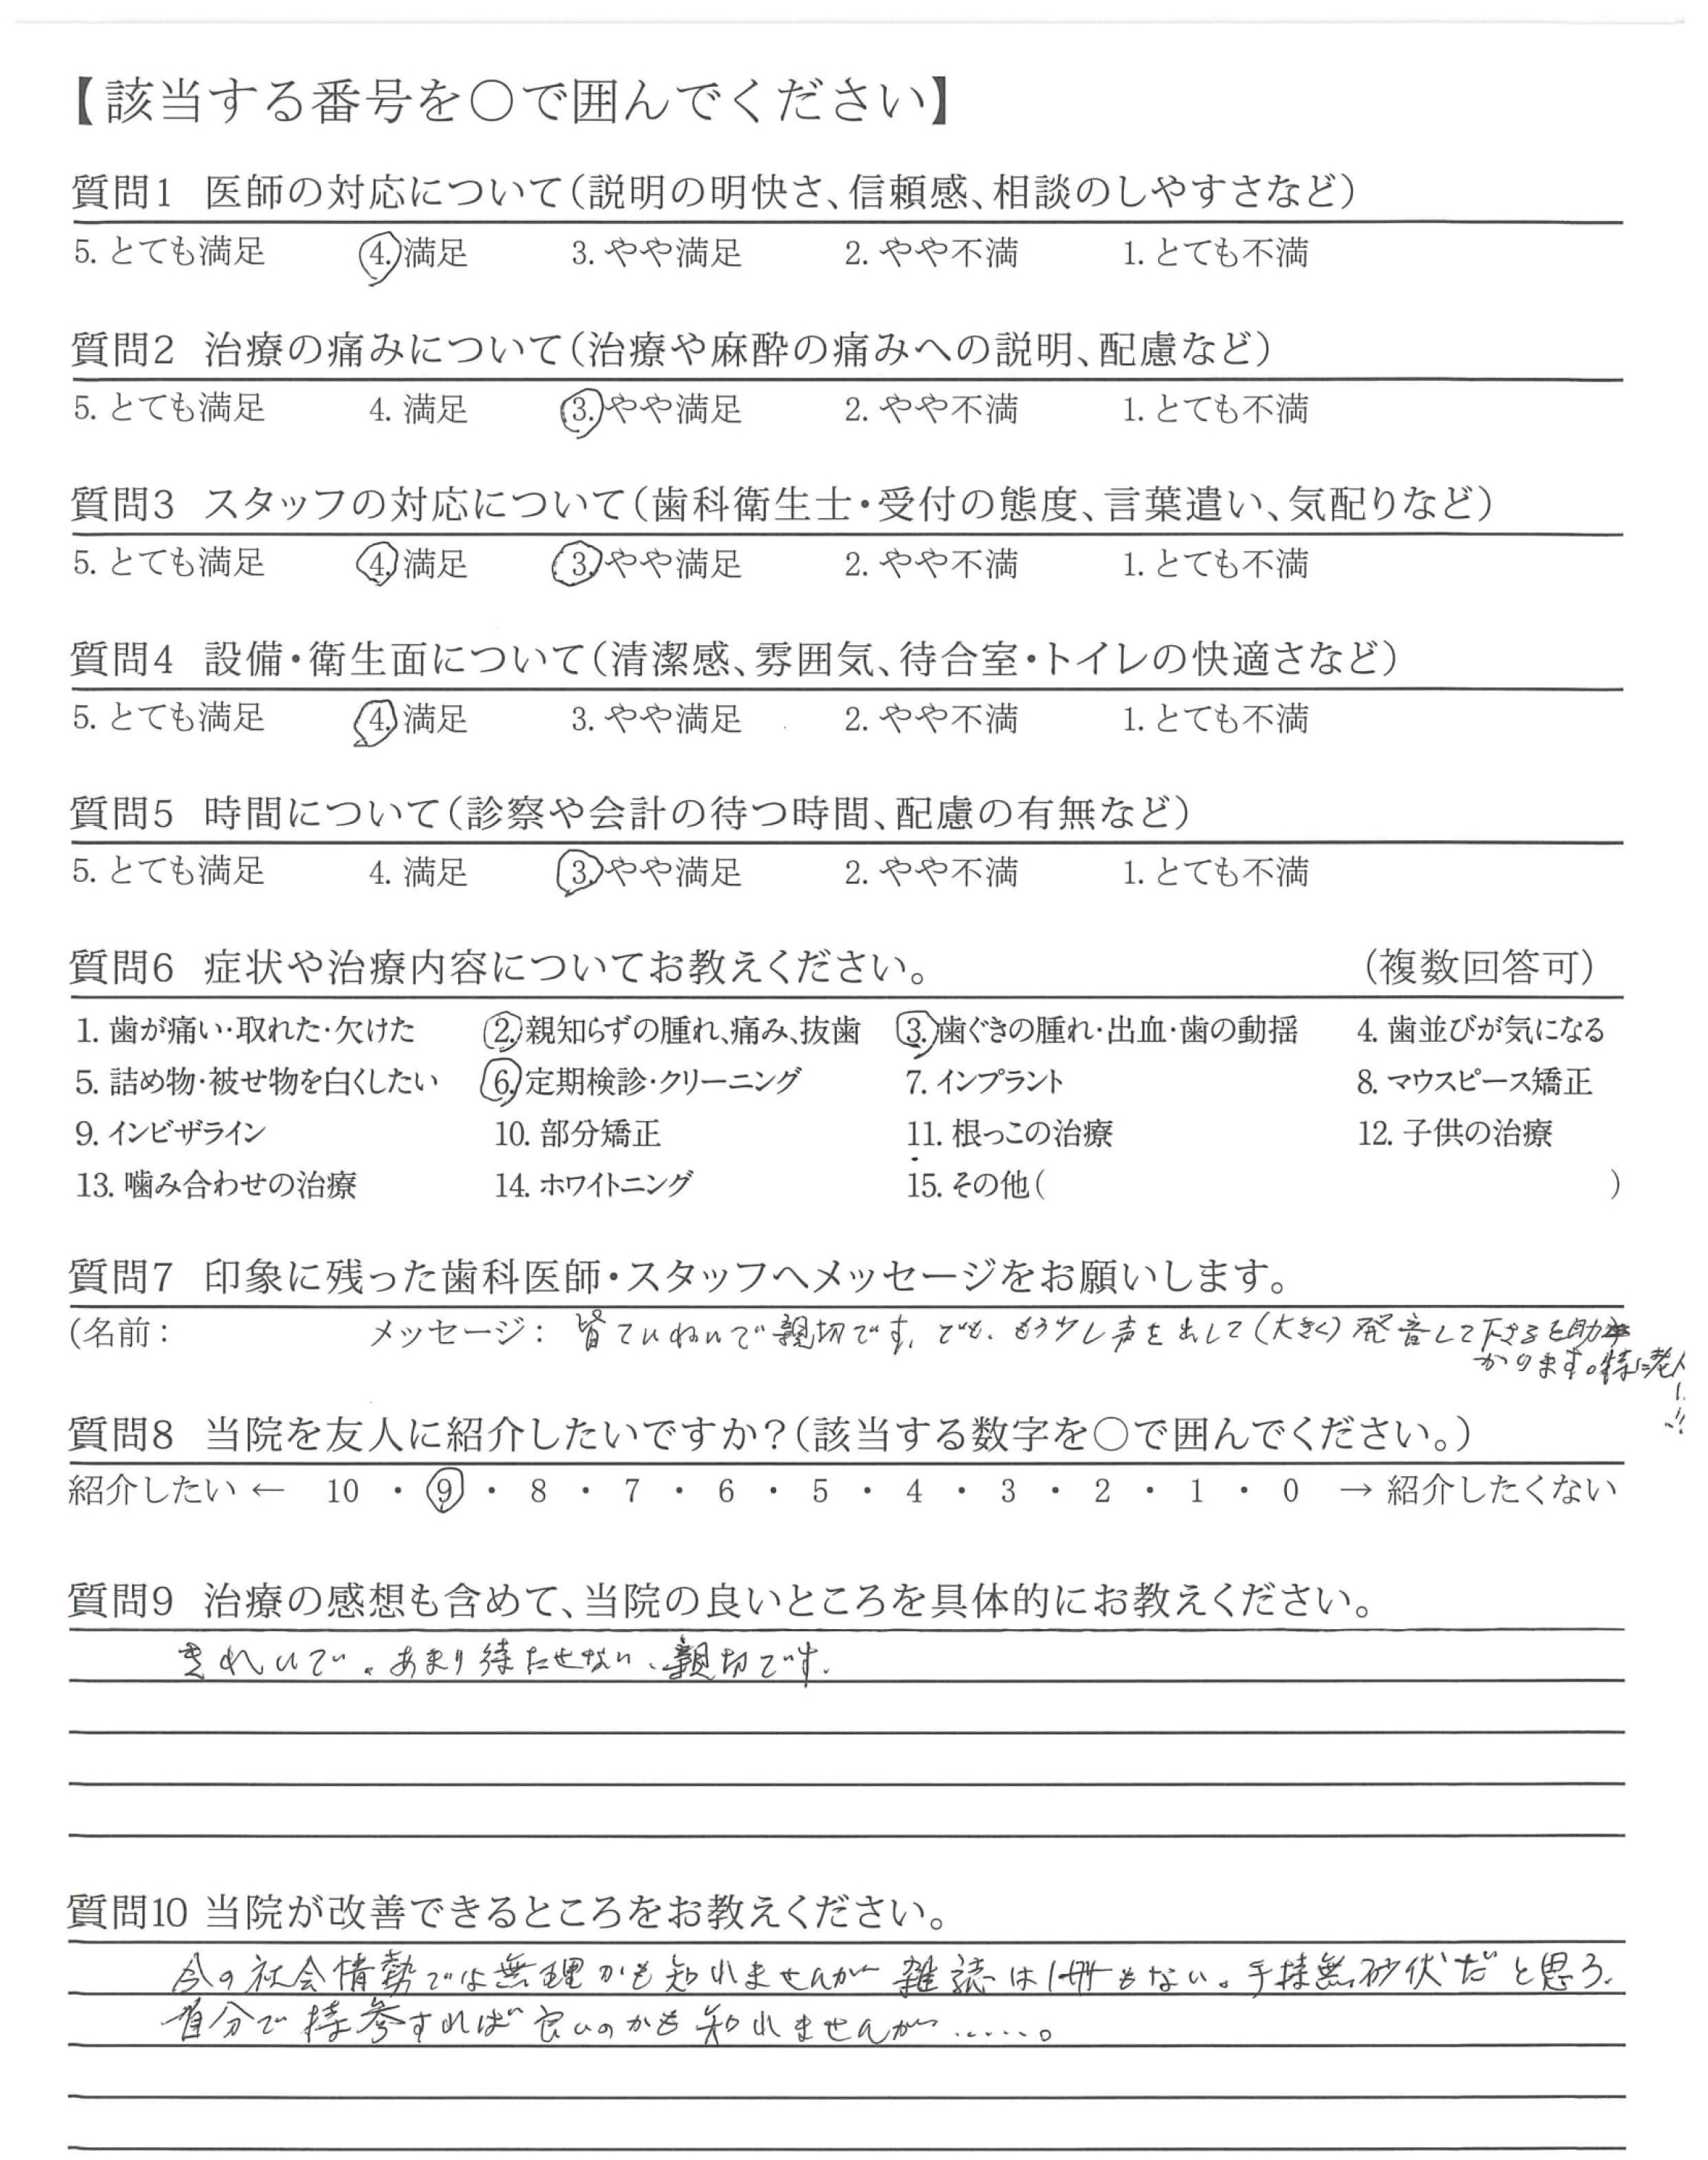 【該当する番号を○で囲んでください】
質問1 医師の対応について(説明の明快さ、信頼感、相談のしやすさなど)
5. とても満足 4. 満足 3. やや満足 2. やや不満 1. とても不満
質問2 治療の痛みについて(治療や麻酔の痛みへの説明、配慮など)
5. とても満足 4. 満足 3. やや満足 2. やや不満 1. とても不満
質問3 スタッフの対応について(歯科衛生士・受付の態度、言葉遣い、気配りなど)
5. とても満足 4. 満足 3. やや満足 2. やや不満 1. とても不満
質問4 設備・衛生面について(清潔感、雰囲気、待合室・トイレの快適さなど)
5. とても満足 4. 満足 3. やや満足 2. やや不満 1. とても不満
質問5 時間について(診察や会計の待つ時間、配慮の有無など)
5. とても満足 4. 満足 3. やや満足 2. やや不満 1. とても不満
質問6 症状や治療内容についてお教えください。 (複数回答可)
1. 歯が痛い・取れた・欠けた 2. 親知らずの腫れ、痛み、抜歯 3. 歯ぐきの腫れ・出血・歯の動揺 4. 歯並びが気になる
5. 詰め物・被せ物を白くしたい 6. 定期検診・クリーニング 7. インプラント 8. マウスピース矯正
9. インビザライン 10. 部分矯正 11. 根っこの治療 12. 子供の治療
13. 噛み合わせの治療 14. ホワイトニング 15. その他( )
質問7 印象に残った歯科医師・スタッフへメッセージをお願いします。
(名前: メッセージ: 皆ていねいで親切です。でも、もう少し声を出して(大きく)発音して下さると助
かります。特に老人
!!
質問8 当院を友人に紹介したいですか?(該当する数字を○で囲んでください。)
紹介したい ← 10 ・ 9 ・ 8 ・ 7 ・ 6 ・ 5 ・ 4 ・ 3 ・ 2 ・ 1 ・ 0 → 紹介したくない
質問9 治療の感想も含めて、当院の良いところを具体的にお教えください。
きれいで。あまり待たせない、親切です。
質問10 当院が改善できるところをお教えください。
今の社会情勢では無理かも知れませんが雑誌は1冊もない。手持無砂伏だと思う。
自分で持参すれば良いのかも知れませんが……。